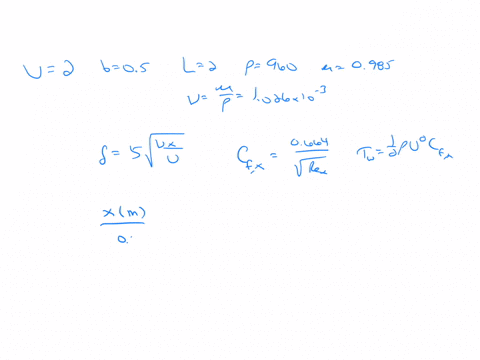 U=2 b=0.5 L=2 ρ=960 μ=0.985
ν=μ/ρ=1.026×10^-3
δ=5√(νx/U) C_f,x=0.664/√Re_x τ_w=1/2 ρU^0 C_f,x
x(m)
0.